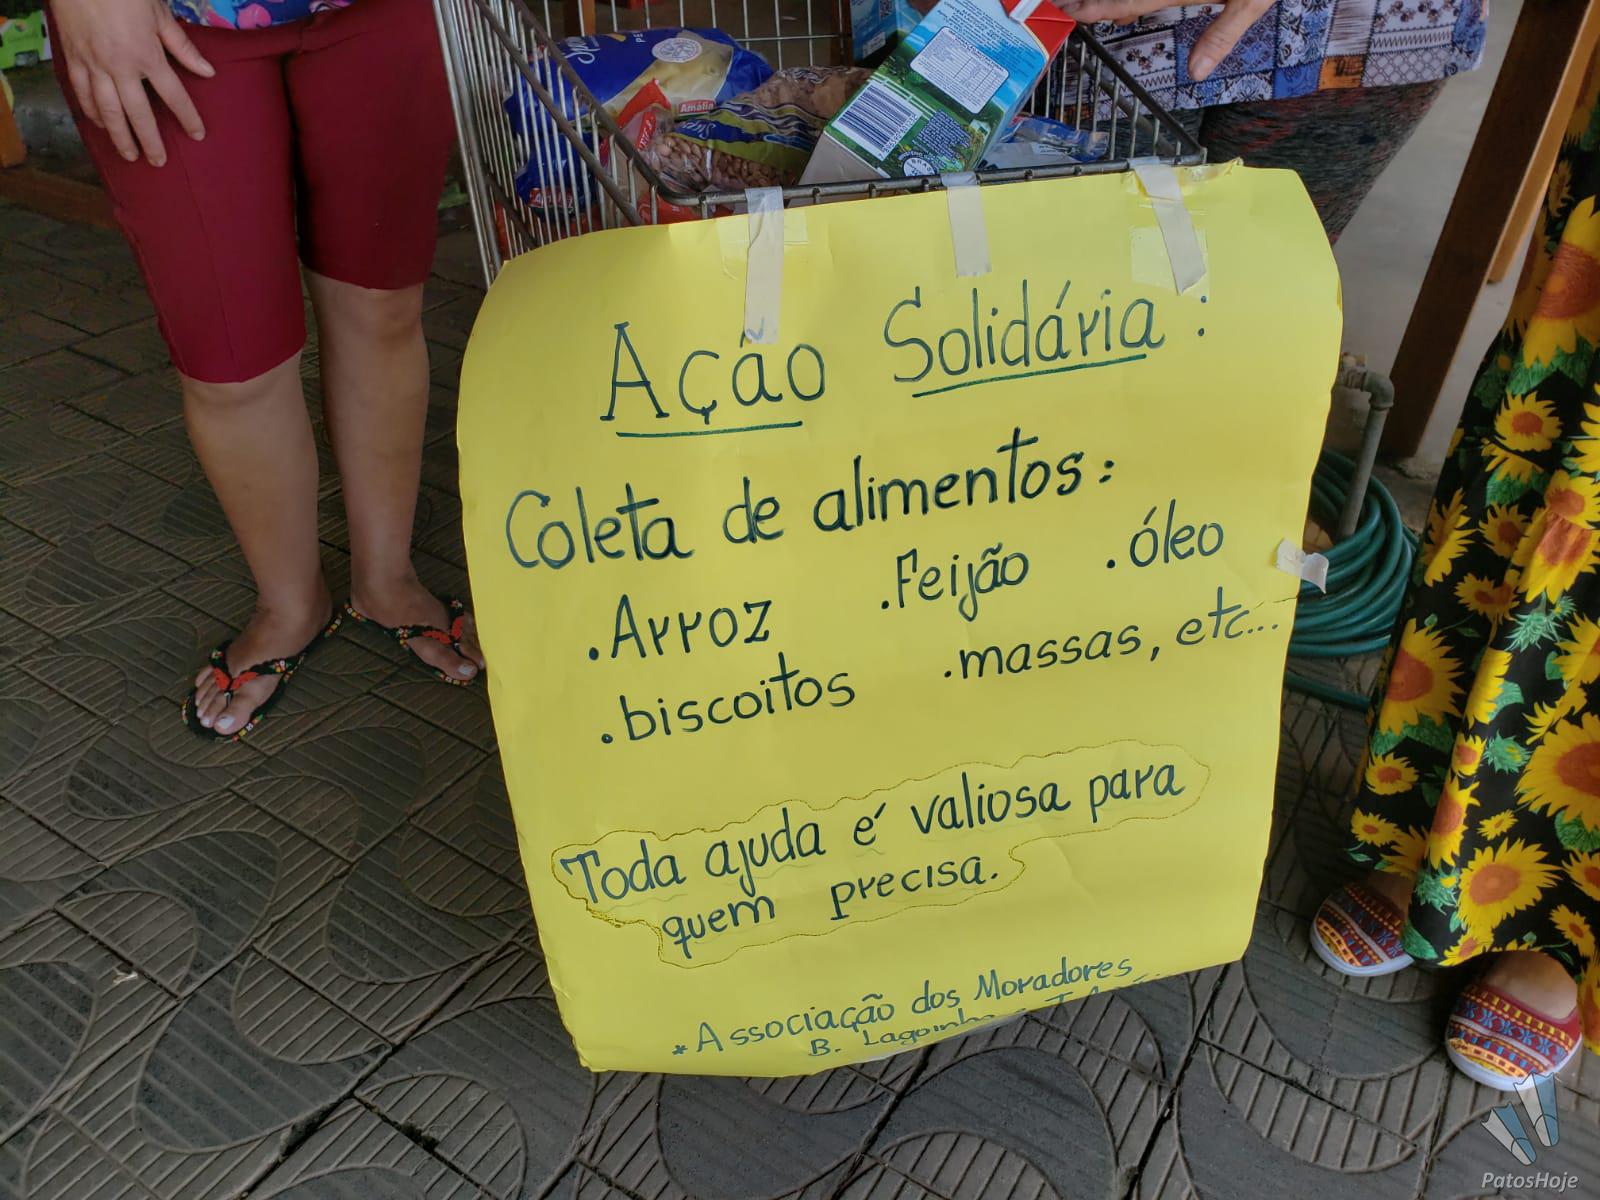 Amália
Ação Solidária :
Coleta de alimentos :
. Arroz . Feijão . óleo
. biscoitos . massas, etc...
Toda ajuda é valiosa para
quem precisa.
* Associação dos Moradores
B.
PatosHoje